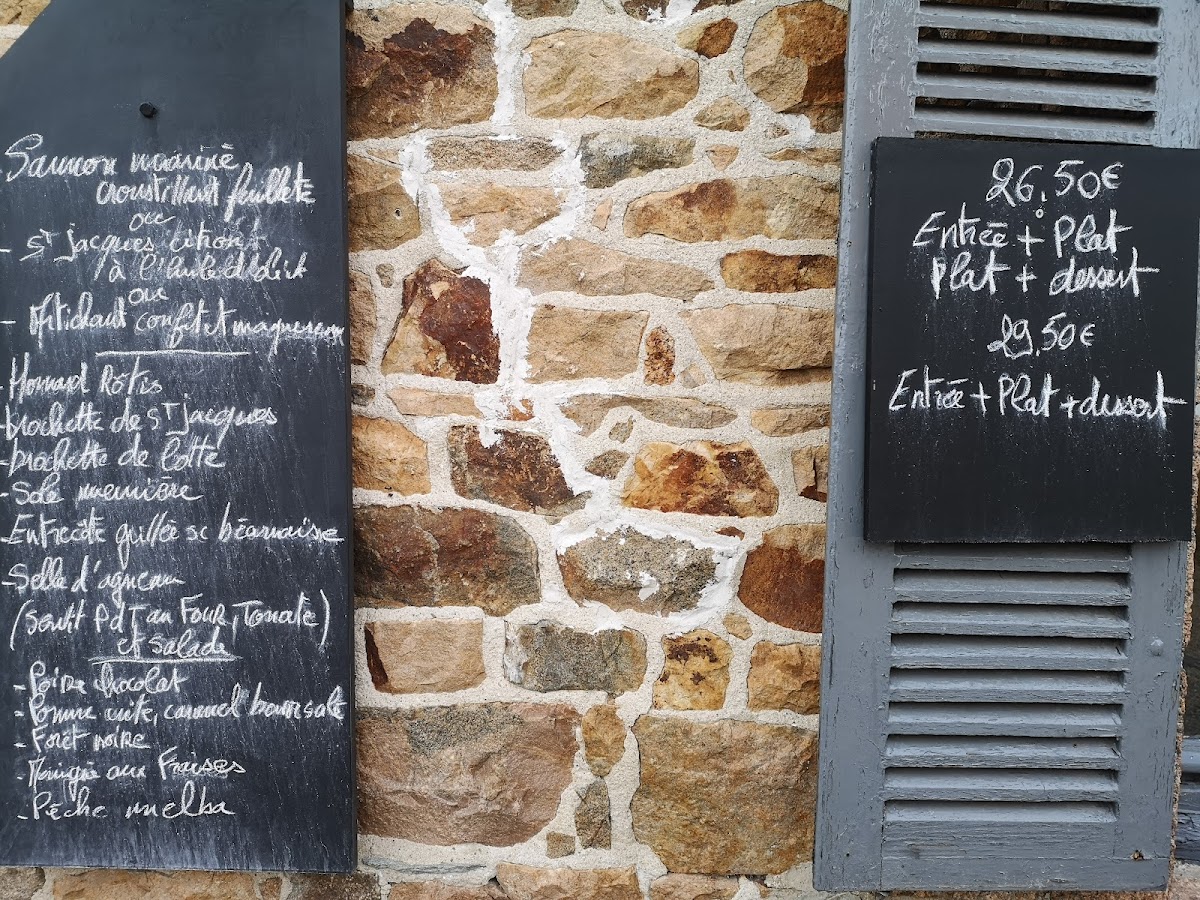 Saumon mariné
croustillant feuilleté
ou
- St Jacques citron
à l'
ou
- Artichaut confit et
Homard Rôtis
- brochette de St Jacques
- brochette de lotte
- Sole meunière
- Entrecôte grillée sc béarnaise
- Selle d'agneau
(servit PdT au Four, Tomate)
et salade
- Poire chocolat
- Pomme cuite, caramel beurre salé
- Forêt noire
- aux Fraises
- Pêche melba
26.50€
Entrée + Plat
Plat + dessert
29.50€
Entrée + Plat + dessert